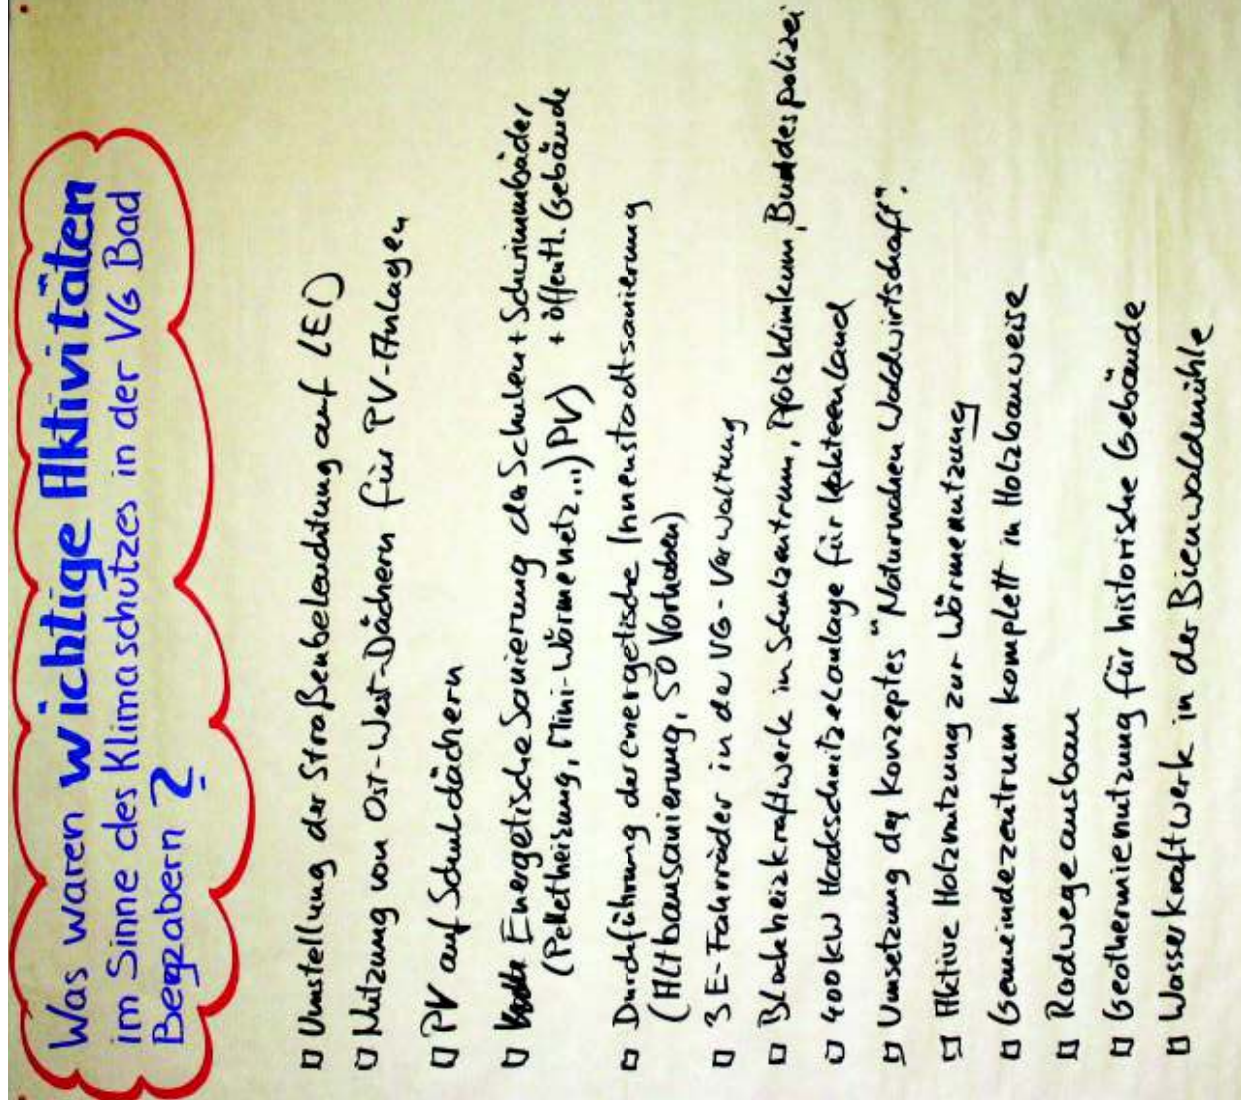 Was waren wichtige Aktivitäten
im Sinne des Klimaschutzes in der VG Bad
Bergzabern ?
Umstellung der Straßenbeleuchtung auf LED
Nutzung von Ost-West-Dächern für PV-Anlagen
PV auf Schuldächern
Energetische Sanierung der Schulen + Schwimmbäder
(Pelletheizung, Mini-Wärmenetz...) PV) + öffentl. Gebäude
Durchführung der energetische Innenstadtsanierung
(Altbausanierung, 50 Vorhaben)
3 E-Fahrräder in der VG-Verwaltung
Blockheizkraftwerk in Schulzentrum, Pfalzklinikum, Bundespolizei
400 kW Hackschnitzelanlage für
Umsetzung des Konzeptes "Naturnahen Waldwirtschaft".
Aktive Holznutzung zur Wärmenutzung
Gemeindezentrum komplett in Holzbauweise
Radwegeausbau
Geothermienutzung für historische Gebäude
Wasserkraftwerk in der Bienwaldmühle